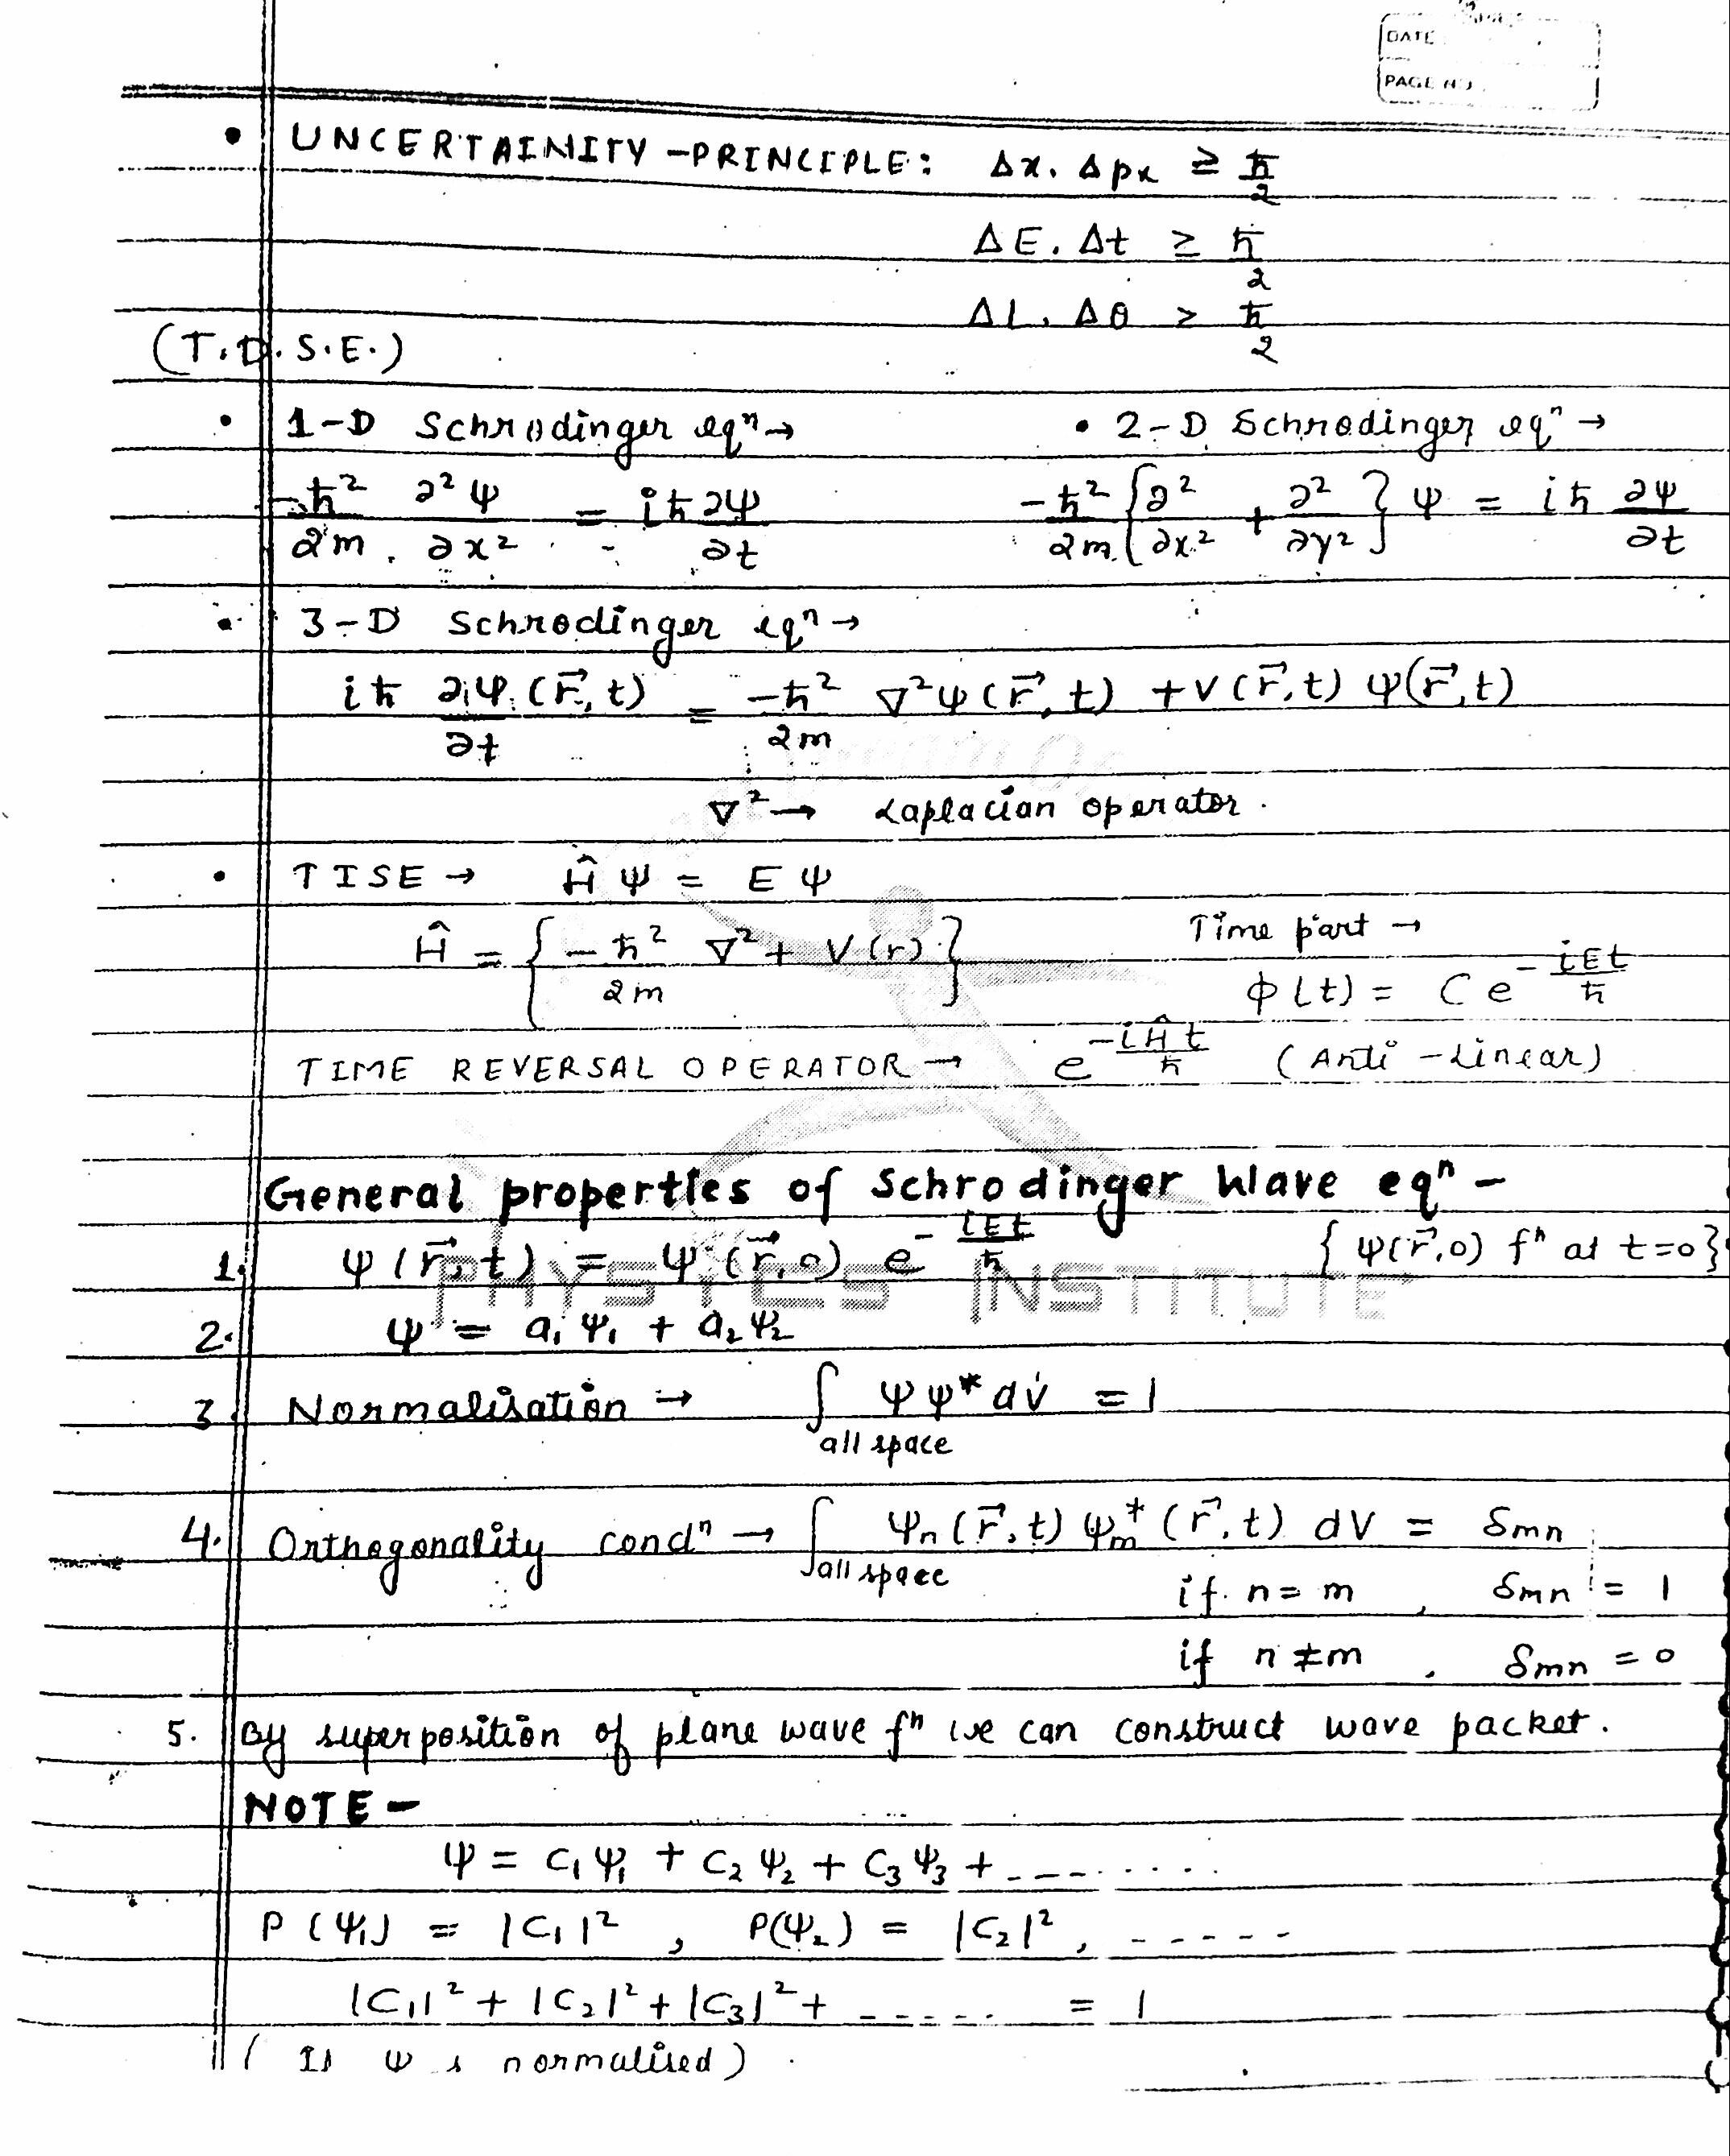 DATE
PAGE NO.
• UNCERTAINITY -PRINCIPLE: Δx. Δpx ≥ ħ/2
ΔE. Δt ≥ ħ/2
ΔL. Δθ ≥ ħ/2
(T.D.S.E.)
• 1-D Schrodinger eqⁿ→ • 2-D Schrodinger eqⁿ→
-ħ²/2m . ∂²ψ/∂x² = iħ ∂ψ/∂t -ħ²/2m {∂²/∂x² + ∂²/∂y²} ψ = iħ ∂ψ/∂t
• 3-D Schrodinger eqⁿ→
iħ ∂ψ(r⃗,t)/∂t = -ħ²/2m ∇²ψ(r⃗,t) + V(r⃗,t) ψ(r⃗,t)
∇² → Laplacian operator.
• TISE → Ĥψ = Eψ
Ĥ = {-ħ²/2m ∇² + V(r)} Time part →
ϕ(t) = C e^(-iEt/ħ)
TIME REVERSAL OPERATOR → e^(-iĤt/ħ) (Anti-Linear)
General properties of Schrodinger Wave eqⁿ -
1. ψ(r⃗,t) = ψ(r⃗,0) e^(-iEt/ħ) {ψ(r⃗,0) fⁿ at t=0}
PHYSICS INSTITUTE
2. ψ = a₁ψ₁ + a₂ψ₂
3. Normalisation → ∫ ψψ* dv = 1
all space
4. Orthogonality condⁿ → ∫ ψn(r⃗,t) ψm*(r⃗,t) dV = δmn
all space
if n = m , δmn = 1
if n ≠ m , δmn = 0
5. By superposition of plane wave fⁿ we can construct wave packet.
NOTE -
ψ = C₁ψ₁ + C₂ψ₂ + C₃ψ₃ + ........
P(ψ₁) = |C₁|² , P(ψ₂) = |C₂|² , -----
|C₁|² + |C₂|² + |C₃|² + ...... = 1
( If ψ is normalised)